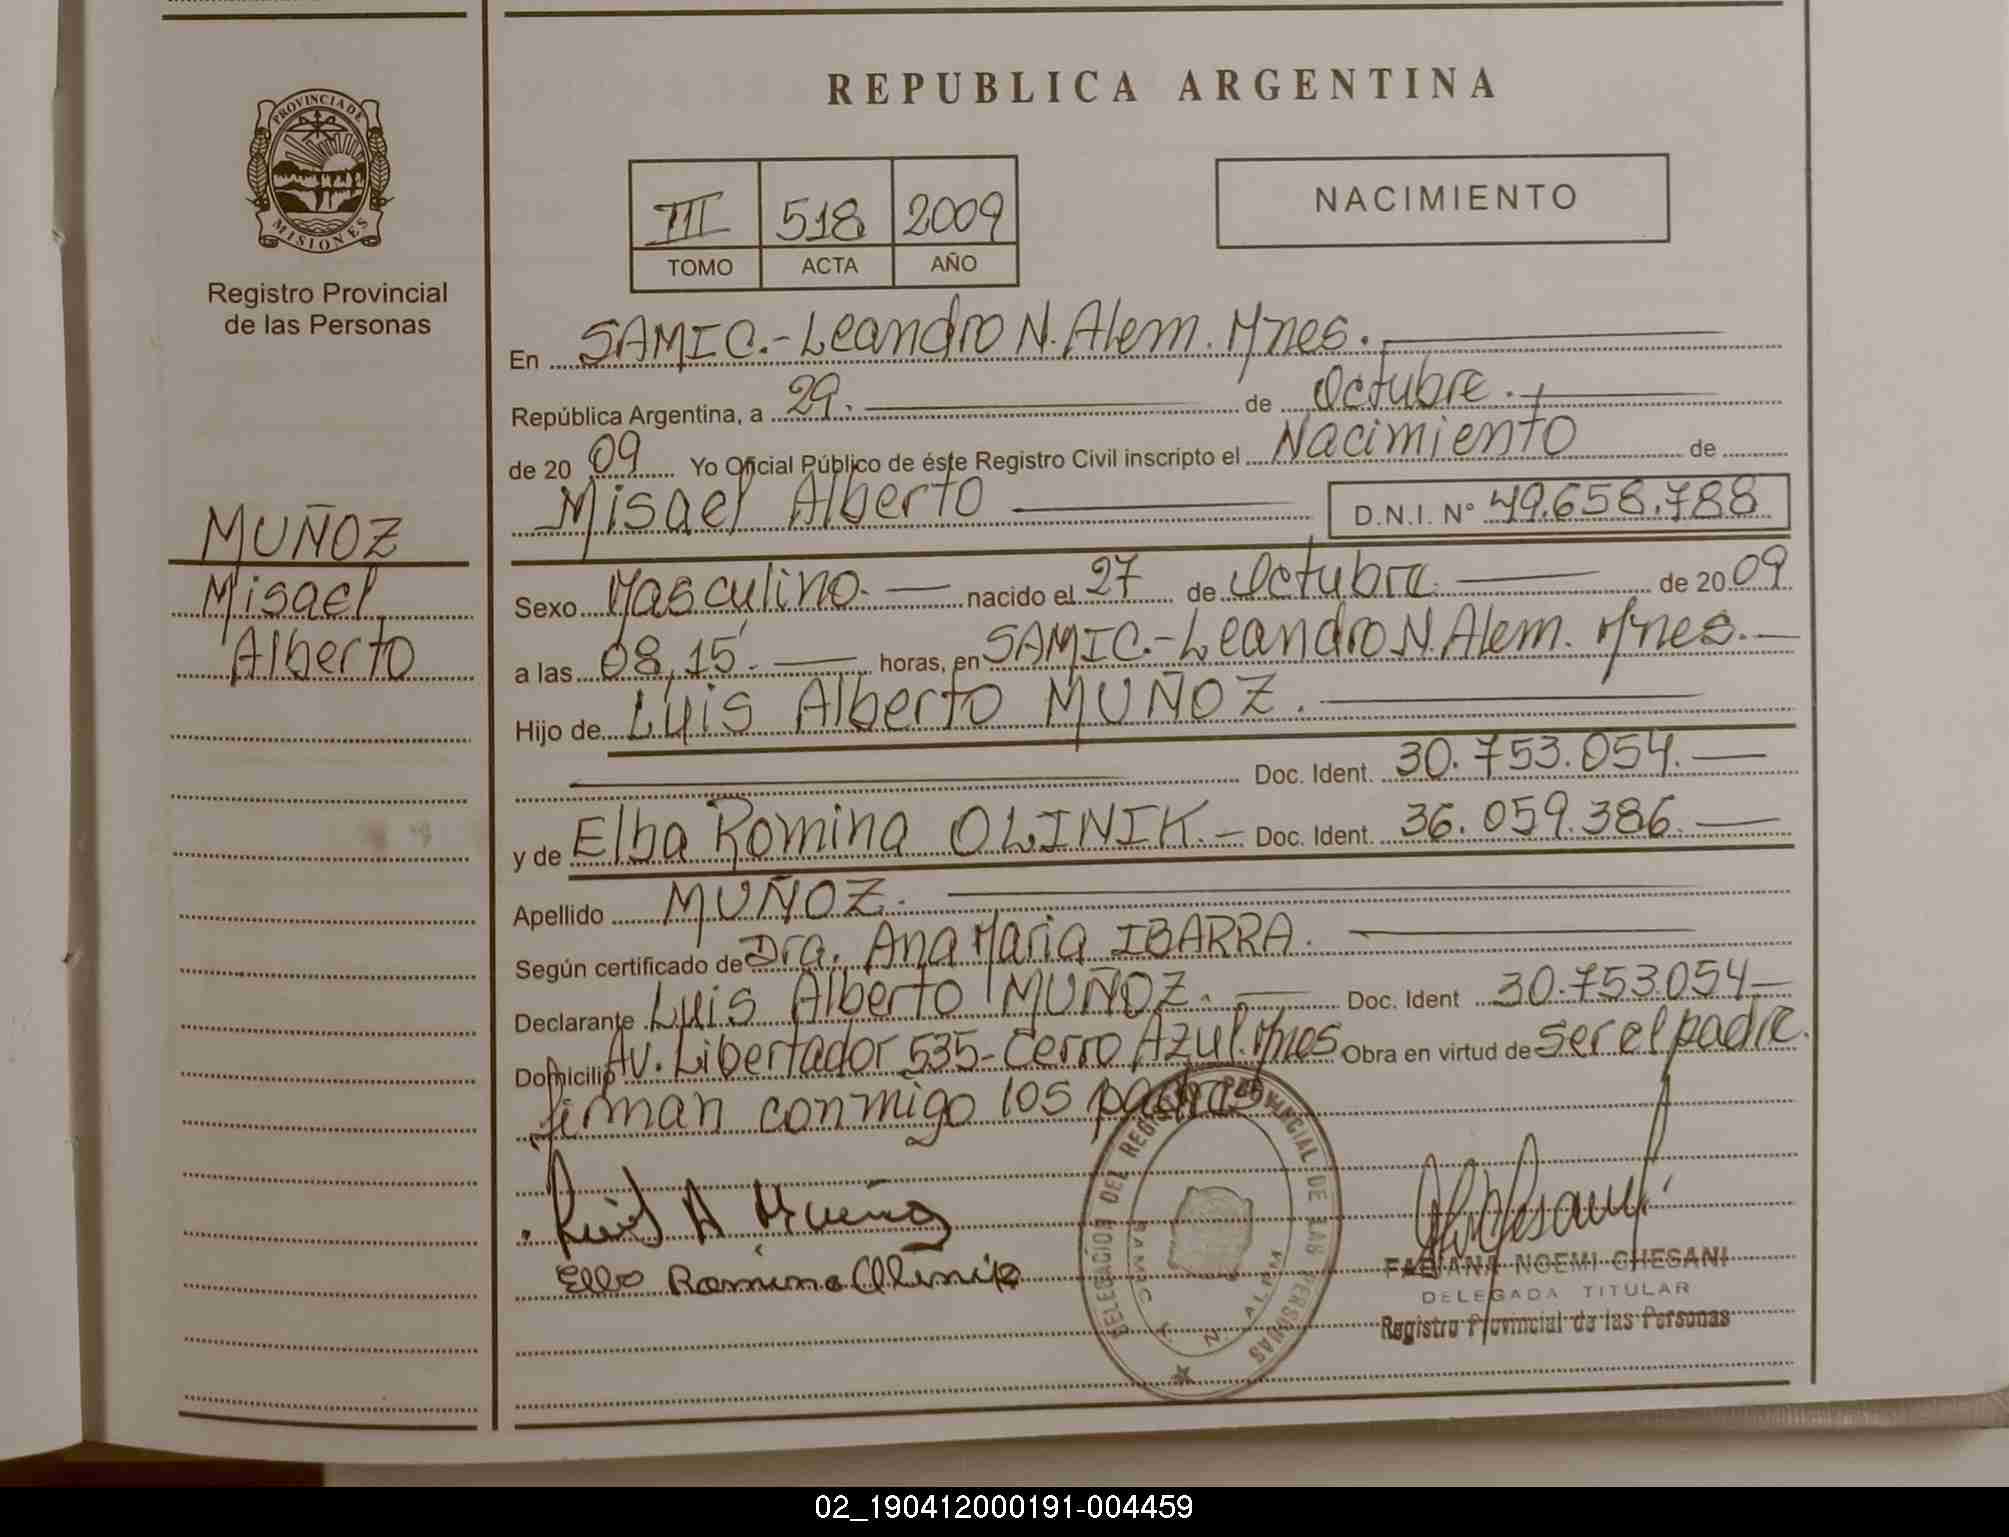 REPUBLICA ARGENTINA
PROVINCIA DE
MISIONES
Registro Provincial
de las Personas
III 518 2009
TOMO ACTA AÑO
NACIMIENTO
En SAMIC.- Leandro N. Alem. Mnes.
República Argentina, a 29. de Octubre.
de 20 09 Yo Oficial Público de éste Registro Civil inscripto el Nacimiento de
Misael Alberto D.N.I. N° 49.658.788
MUÑOZ
Misael
Alberto
Sexo Masculino. nacido el 27 de Octubre. de 20 09
a las 08,15. horas, en SAMIC.- Leandro N. Alem. Mnes.
Hijo de Luis Alberto MUÑOZ.
Doc. Ident. 30.753.054.
y de Elba Romina OLINIK. Doc. Ident. 36.059.386.
Apellido MUÑOZ.
Según certificado de Dra. Ana Maria IBARRA.
Declarante Luis Alberto MUÑOZ. Doc. Ident 30.753.054
Domicilio Av. Libertador 535- Cerro Azul. Mnes Obra en virtud de ser el padre.
firman conmigo los padres
Luis A Muñoz
Elba Romina Olinik
DELEGACION DEL REGISTRO PROVINCIAL DE LAS PERSONAS
SAMIC L. N. ALEM
FABIANA NOEMI CHESANI
DELEGADA TITULAR
Registro Provincial de las Personas
02_190412000191-004459